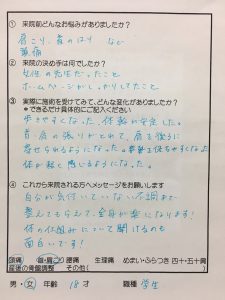 ① 来院前どんなお悩みがありましたか？
肩こり、首のはり など
頭痛
② 来院の決め手は何でしたか？
女性の先生だったこと
ホームページがしっかりしてたこと
③ 実際に施術を受けてみて、どんな変化がありましたか？
＊できるだけ具体的にご記入ください
歩きやすくなった、体軸が安定した。
首・肩の張りがとれて、肩を後ろに
寄せられるようになった。
体が軽く感じるようになった。
④ これから来院される方へメッセージをお願いします
自分が気付いていない不調まで
整えてもらえて、全身が楽になります！
体の仕組みについて聞けるのも
面白いです！
頭痛 首・肩こり 腰痛 生理痛 めまい・ふらつき 四十・五十肩
産後の骨盤調整 その他（ ）
男・女 年齢 18才 職種 学生